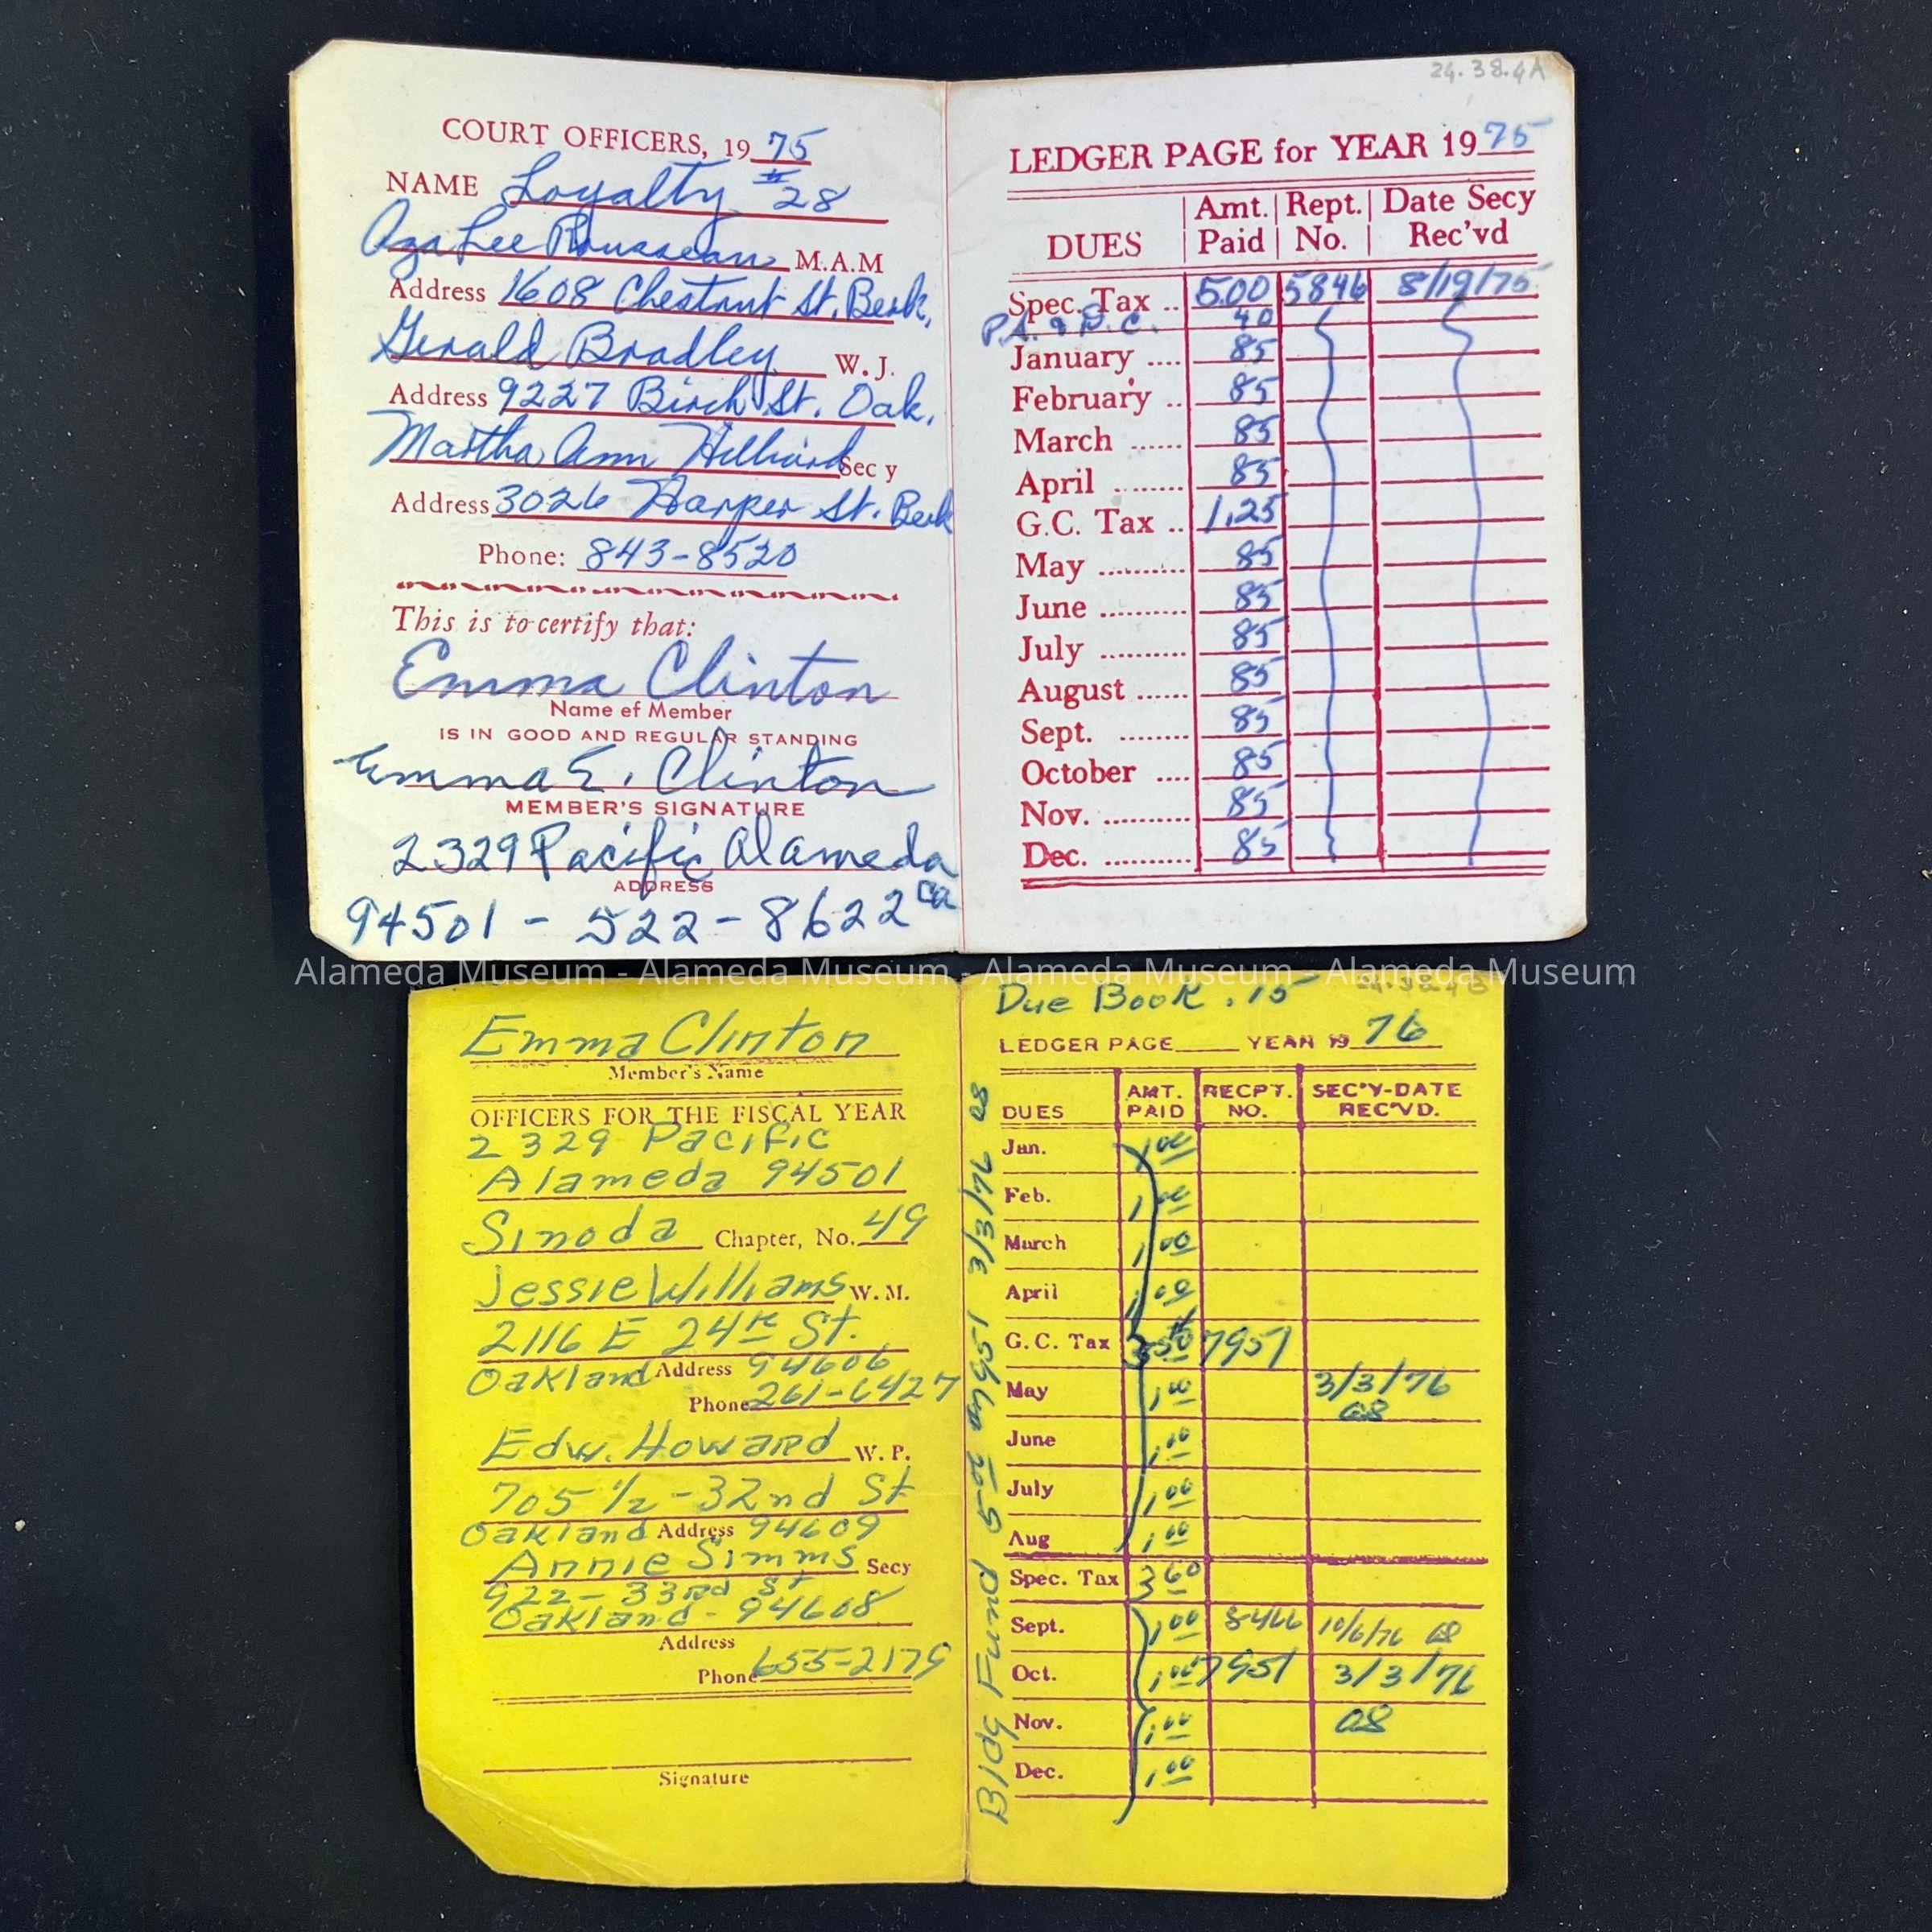 24.38.4A
COURT OFFICERS, 19 75
NAME Loyalty #28
Oza Lee Rousseau M.A.M
Address 1608 Chestnut St. Berk.
Gerald Bradley W. J.
Address 9227 Birch St. Oak.
Martha Ann Hilliard Sec y
Address 3026 Harper St. Berk
Phone: 843-8520
This is to certify that:
Emma Clinton
Name of Member
IS IN GOOD AND REGULAR STANDING
Emma E. Clinton
MEMBER'S SIGNATURE
2329 Pacific Alameda
ADDRESS
94501 - 522-8622 Ca
LEDGER PAGE for YEAR 19 75
DUES Amt. Paid Rept. No. Date Secy Rec'vd
Spec. Tax .. 5.00 5846 8/19/75
P.A. & B.C. 40
January .... 85
February .. 85
March ...... 85
April ........ 85
G.C. Tax .. 1.25
May .......... 85
June .......... 85
July .......... 85
August ...... 85
Sept. ........ 85
October .... 85
Nov. .......... 85
Dec. .......... 85
Alameda Museum - Alameda Museum - Alameda Museum - Alameda Museum
Emma Clinton
Member's Name
OFFICERS FOR THE FISCAL YEAR
2329 Pacific
Alameda 94501
Sinoda Chapter, No. 49
Jessie Williams W. M.
2116 E 24th St.
Oakland Address 94606
Phone 261-6427
Edw. Howard W. P.
705 1/2 - 32nd St
Oakland Address 94609
Annie Simms Secy
922 - 33rd St
Oakland - 94608
Address
Phone 655-2179
Signature
24.38.4B
Due Book .15
LEDGER PAGE YEAR 19 76
DUES AMT. PAID RECPT. NO. SEC'Y-DATE REC'VD.
Jan. 1.00
Feb. 1.00
March 1.00
April 1.00
G. C. Tax 3.50 7951
May 1.00 3/3/76
June 1.00
July 1.00
Aug 1.00
Spec. Tax 3.60
Sept. 1.00 8466 10/6/76
Oct. 1.00 7951 3/3/76
Nov. 1.00
Dec. 1.00
Bldg Fund 5.00 7951 3/3/76